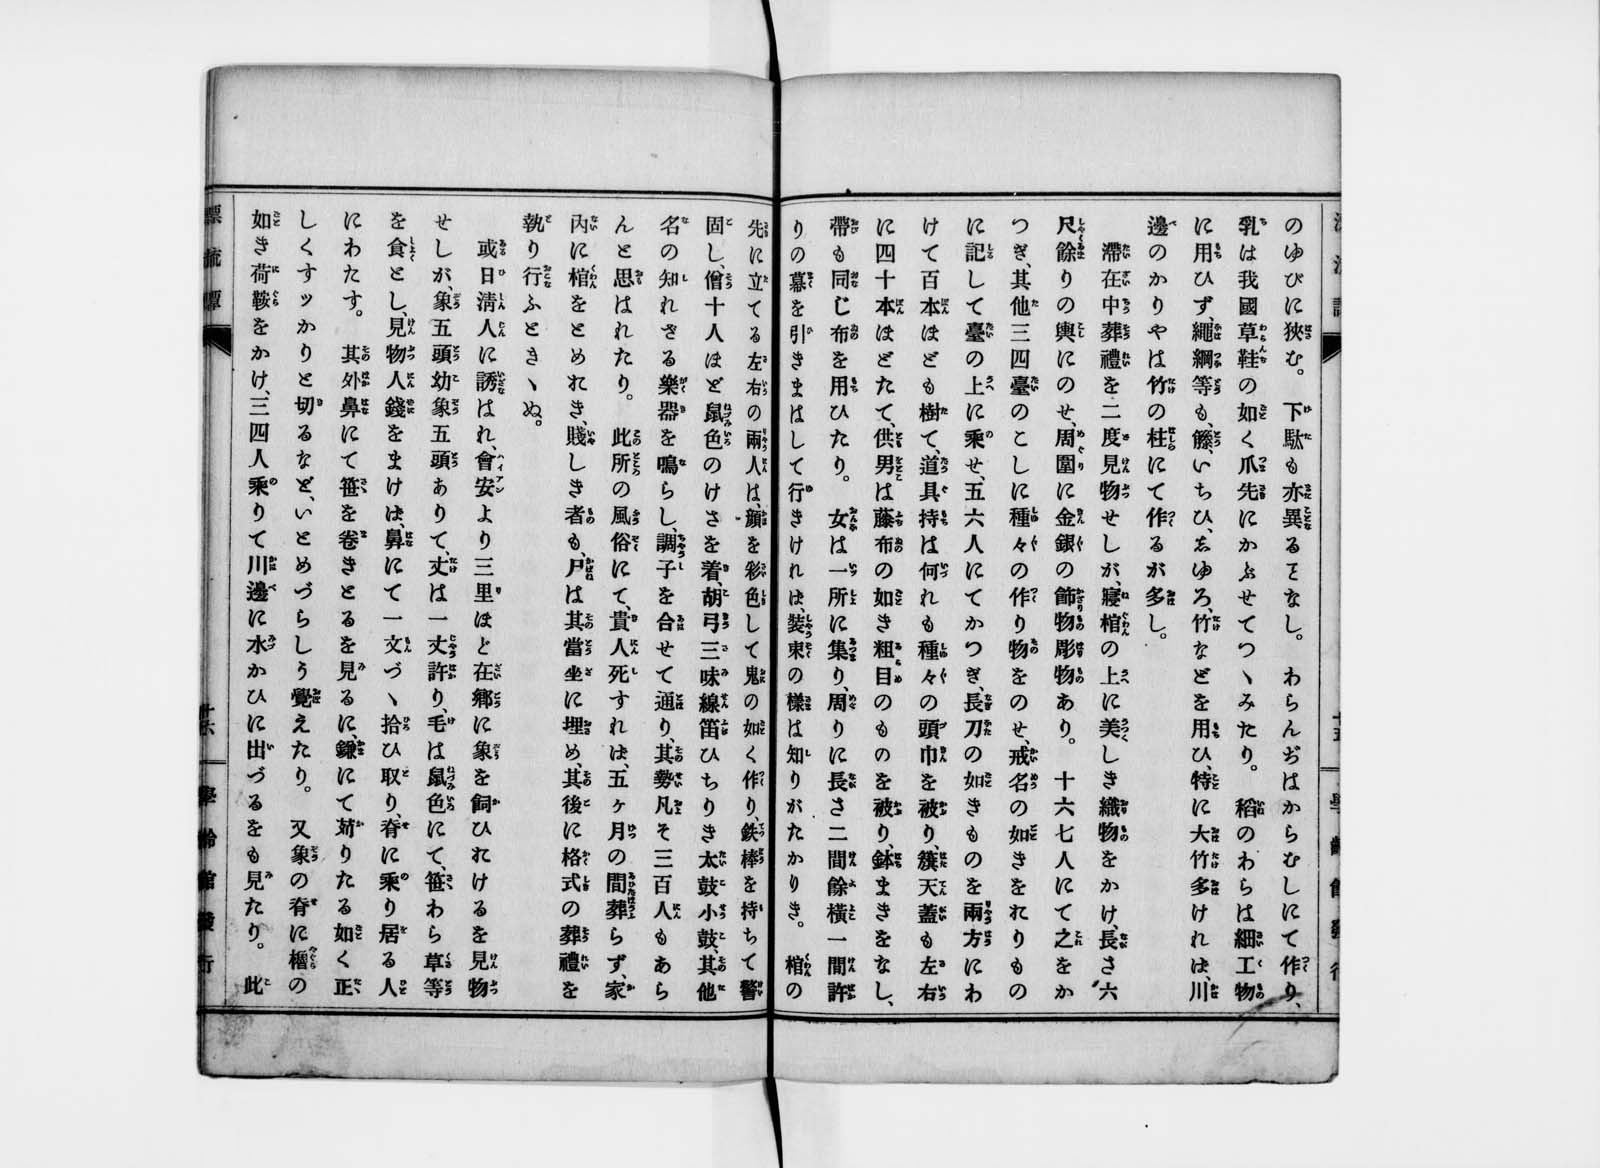 のゆびに狹む。　下駄も亦異るとなし。　わらんぢはからむしにて作り、
乳は我國草鞋の如く爪先にかぶせてつゝみたり。　稻のわらは細工物
に用ひず、繩綱等も、籐、いちひ、志ゆろ、竹などを用ひ、特に大竹多ければ、川
邊のかりやは竹の柱にて作るが多し。
　滯在中葬禮を二度見物せしが、寢棺の上に美しき織物をかけ、長さ六
尺餘りの輿にのせ、周圍に金銀の飾物彫物あり。　十六七人にて之をか
つぎ、其他三四臺のこしに種々の作り物をのせ、戒名の如きをれりもの
に記して臺の上に乘せ、五六人にてかつぎ、長刀の如きものを兩方にわ
けて百本ほども樹て、道具持は何れも種々の頭巾を被り、籏天蓋も左右
に四十本ほどたて、供男は藤布の如き粗目のものを被り、鉢まきをなし、
帶も同じ布を用ひたり。　女は一所に集り、周りに長さ二間餘横一間許
りの幕を引きまはして行きけれは、裝束の樣は知りがたかりき。　棺の
先に立てる左右の兩人は、顏を彩色して鬼の如く作り、鉄棒を持ちて警
固し、僧十人ほど鼠色のけさを着、胡弓三味線笛ひちりき太鼓小鼓、其他
名の知れざる樂器を鳴らし、調子を合せて通り、其勢凡そ三百人もあら
んと思はれたり。　此所の風俗にて、貴人死すれは、五ヶ月の間葬らず、家
內に棺をとめれき、賤しき者も、尸は其當坐に埋め、其後に格式の葬禮を
執り行ふときゝぬ。
　或日淸人に誘はれ、會安より三里ほど在鄕に象を飼ひれけるを見物
せしが、象五頭幼象五頭ありて、丈は一丈許り、毛は鼠色にて、笹わら草等
を食とし、見物人錢をまけは、鼻にて一文づゝ拾ひ取り、脊に乘り居る人
にわたす。　其外鼻にて笹を卷きとるを見るに、鎌にて苅りたる如く正
しくすッかりと切るなど、いとめづらしう覺えたり。　又象の脊に櫓の
如き荷鞍をかけ、三四人乘りて川邊に水かひに出づるをも見たり。　此
十六